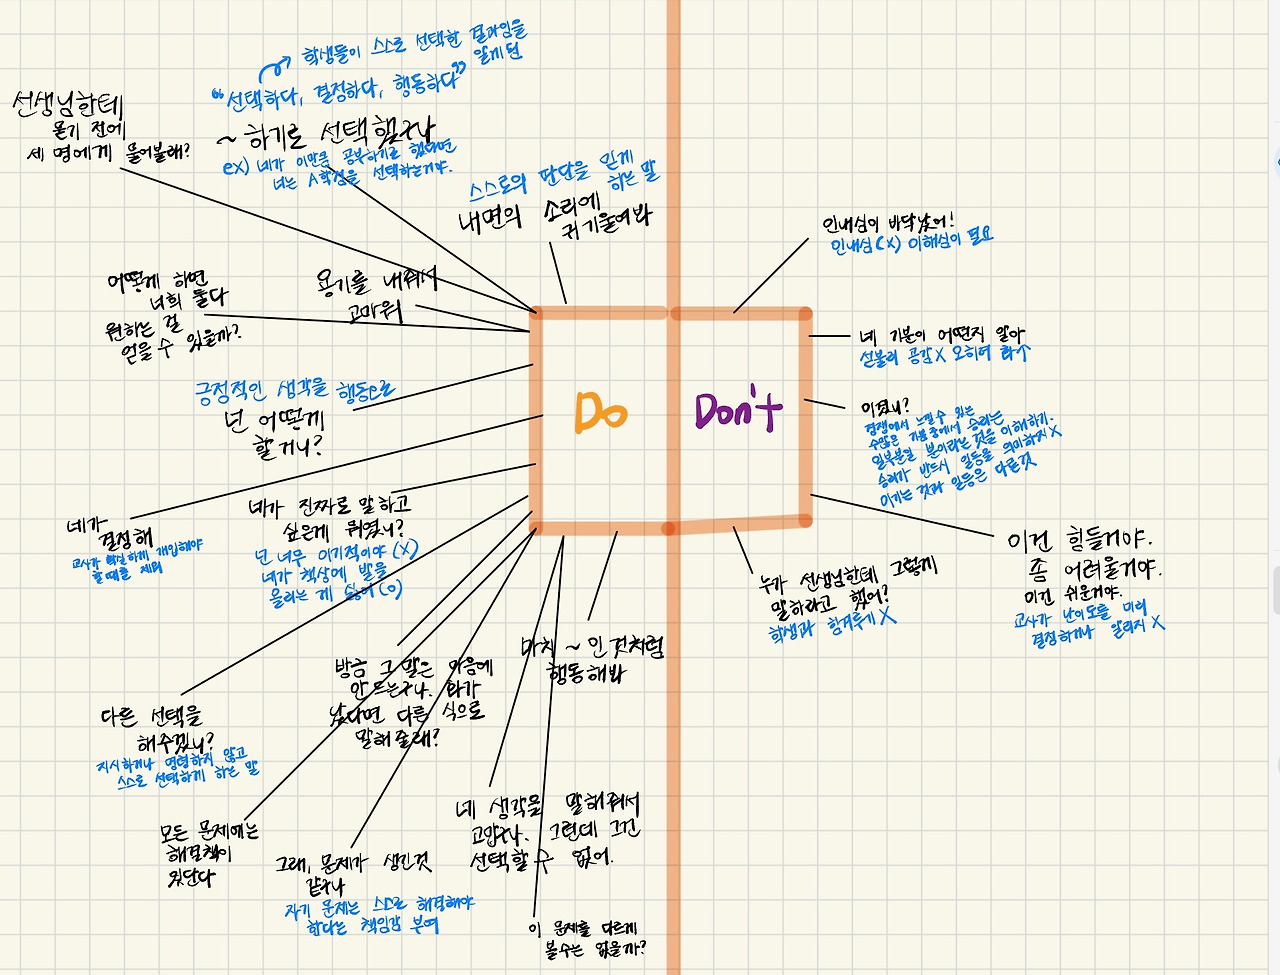 학생들이 스스로 선택한 결과임을
알게 됨
"선택하다, 결정하다, 행동하다"
~ 하기로 선택했구나
ex) 네가 이만큼 공부하기로 했다면
너는 A학점을 선택하는거야.
선생님한테
묻기 전에
세 명에게 물어볼래?
스스로의 판단을 믿게
하는 말
내면의 소리에
귀 기울여봐
어떻게 하면
너희 둘다
원하는 걸
얻을 수 있을까?
용기를 내줘서
고마워
긍정적인 생각을 행동으로
넌 어떻게
할거니?
네가
결정해
교사가 확실하게 개입해야
할 때를 제외
네가 진짜로 말하고
싶은게 뭐였니?
넌 너무 이기적이야 (X)
네가 책상에 발을
올리는 게 싫어 (O)
다른 선택을
해주겠니?
지시하거나 명령하지 않고
스스로 선택하게 하는 말
방금 그 말은 마음에
안 드는구나. 화가
났다면 다른 식으로
말해줄래?
마치 ~ 인 것처럼
행동해봐
모든 문제에는
해결책이
있단다
그래, 문제가 생긴것
같구나
자기 문제는 스스로 해결해야
한다는 책임감 부여
네 생각을 말해줘서
고맙구나. 그런데 그건
선택할 수 없어.
이 문제를 다르게
볼수는 없을까?
Do
Don't
인내심이 바닥났어!
인내심(X) 이해심이 필요
네 기분이 어떤지 알아
섣불리 공감X 오히려 화↑
이겼니?
경쟁에서 느낄 수 있는
수많은 기쁨 중에서 승리는
일부분일 뿐이라는 것을 이해하기.
승리가 반드시 일등을 의미하지 X
이기는 것과 일등은 다른것
이건 힘들거야.
좀 어려울거야.
이건 쉬운거야.
교사가 난이도를 미리
결정하거나 알리지 X
누가 선생님한테 그렇게
말하라고 했어?
학생과 힘겨루기 X